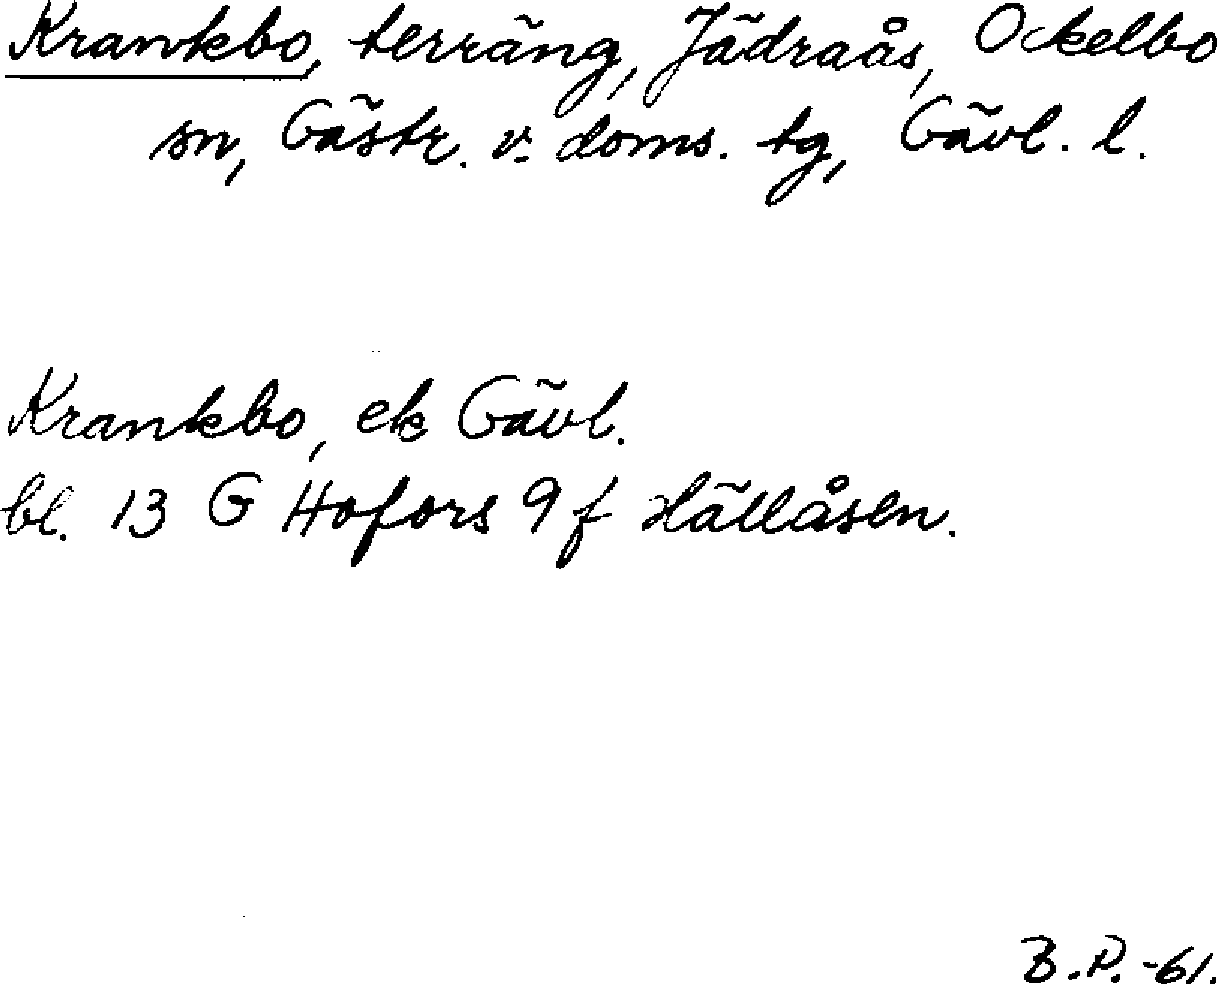 Krankbo, terräng, Jädraås, Ockelbo
sn, Gästr. v. doms. tg, Gävl. l.
Krankbo, ek Gävl.
bl. 13 G Hofors 9 f Hällåsen.
B.P. -61.